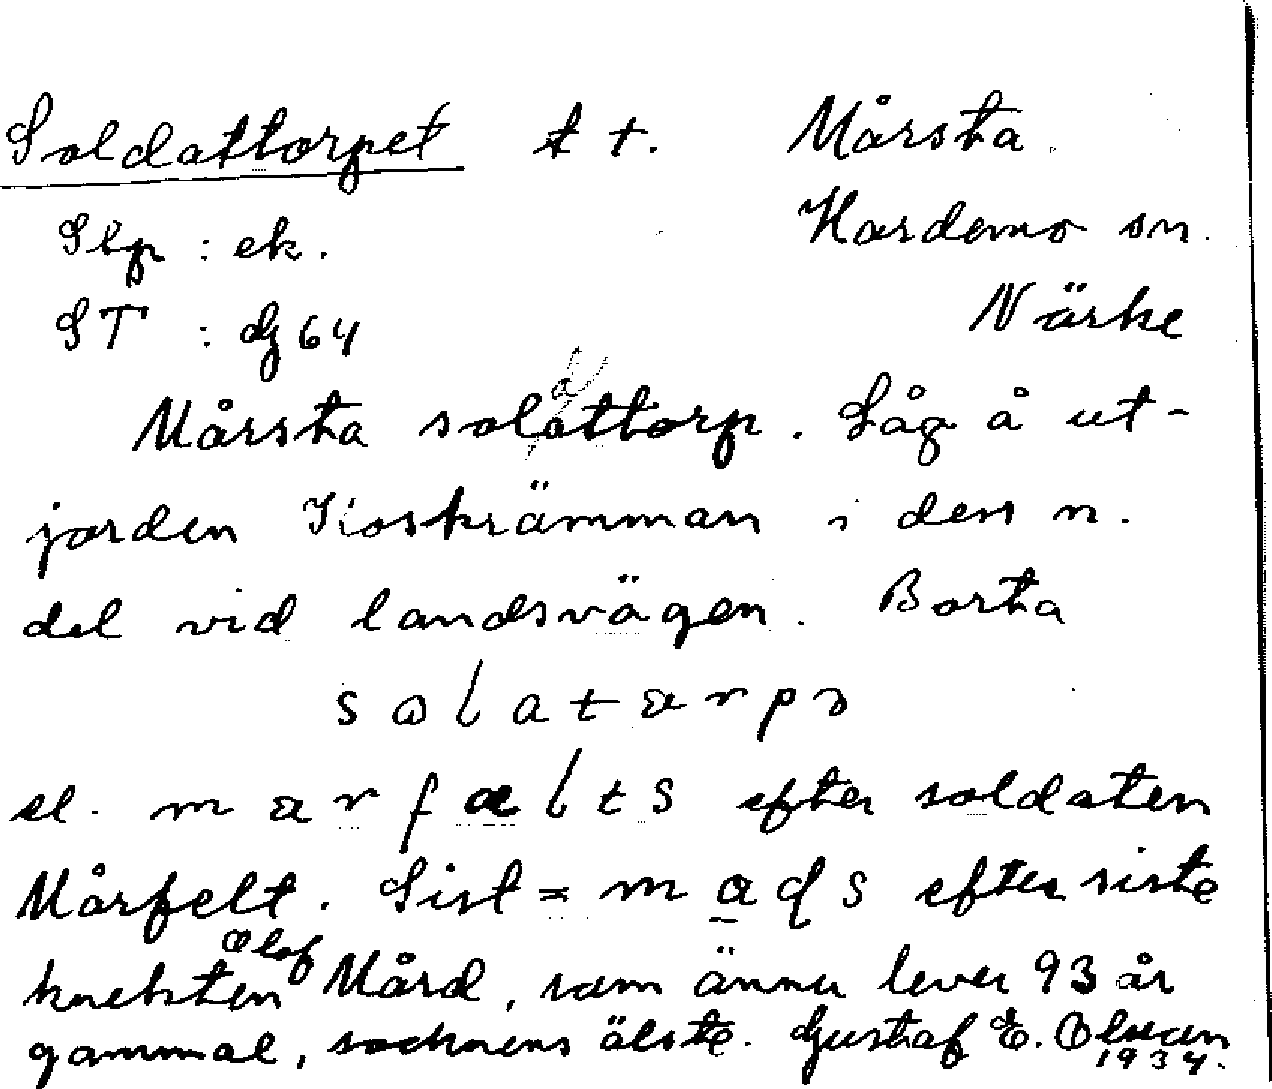 Soldattorpet t t. Mårsta
Slp : ek. Hardemo sn.
ST : dz 64 Närke
Mårsta soldattorp. Låg å ut-
jorden Koskrämman i dess n.
del vid landsvägen. Borta
solatarpə
el. marfælts efter soldaten
Mårfelt. Sist = mads efter siste
knekten Olof Mård, som ännu lever 93 år
gammal, socknens älste. Gustaf E. Olsson
1934.